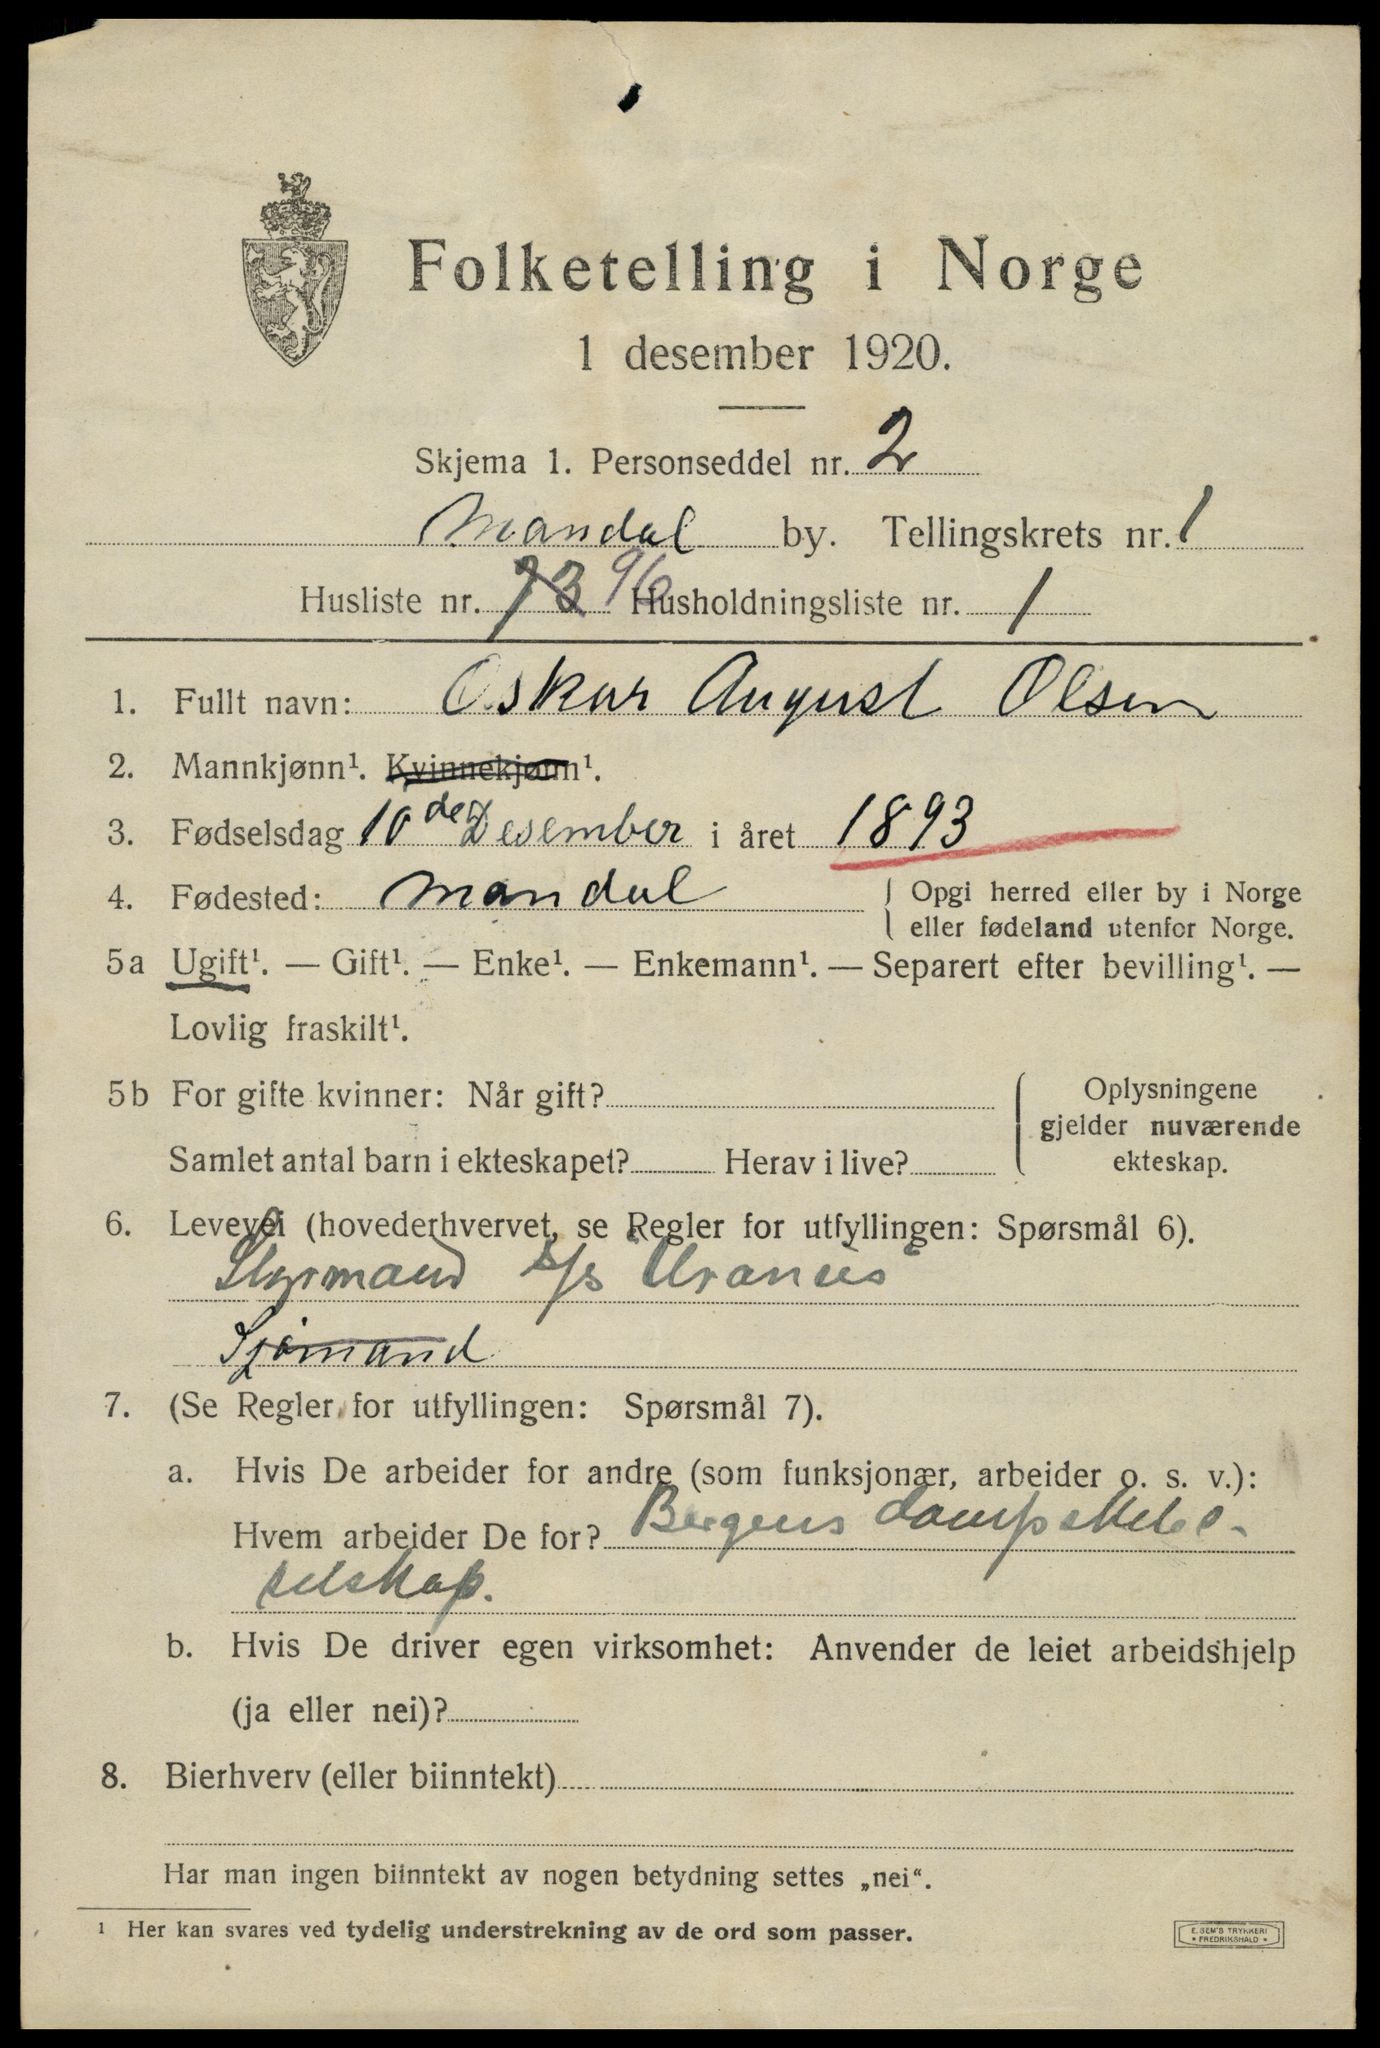 Folketelling i Norge
1 desember 1920.
Skjema 1. Personseddel nr. 2
Mandal by. Tellingskrets nr. 1
Husliste nr. 73 96 Husholdningsliste nr. 1
1. Fullt navn: Oskar August Olsen
2. Mannkjønn¹. Kvinnekjønn¹.
3. Fødselsdag 10 de Desember i året 1893
4. Fødested: Mandal { Opgi herred eller by i Norge
eller fødeland utenfor Norge.
5a Ugift¹. — Gift¹. — Enke¹. — Enkemann¹. — Separert efter bevilling¹. —
Lovlig fraskilt¹.
5b For gifte kvinner: Når gift? { Oplysningene
gjelder nuværende
Samlet antal barn i ekteskapet? Herav i live? ekteskap.
6. Levevei (hovederhvervet, se Regler for utfyllingen: Spørsmål 6).
Styrmand s/s "Uranus"
Sjømand
7. (Se Regler for utfyllingen: Spørsmål 7).
a. Hvis De arbeider for andre (som funksjonær, arbeider o. s. v.):
Hvem arbeider De for? Bergens dampskibs-
selskap.
b. Hvis De driver egen virksomhet: Anvender de leiet arbeidshjelp
(ja eller nei)?
8. Bierhverv (eller biinntekt)
Har man ingen biinntekt av nogen betydning settes „nei“.
¹ Her kan svares ved tydelig understrekning av de ord som passer.
E. SEM'S TRYKKERI
* FREDRIKSHALD *